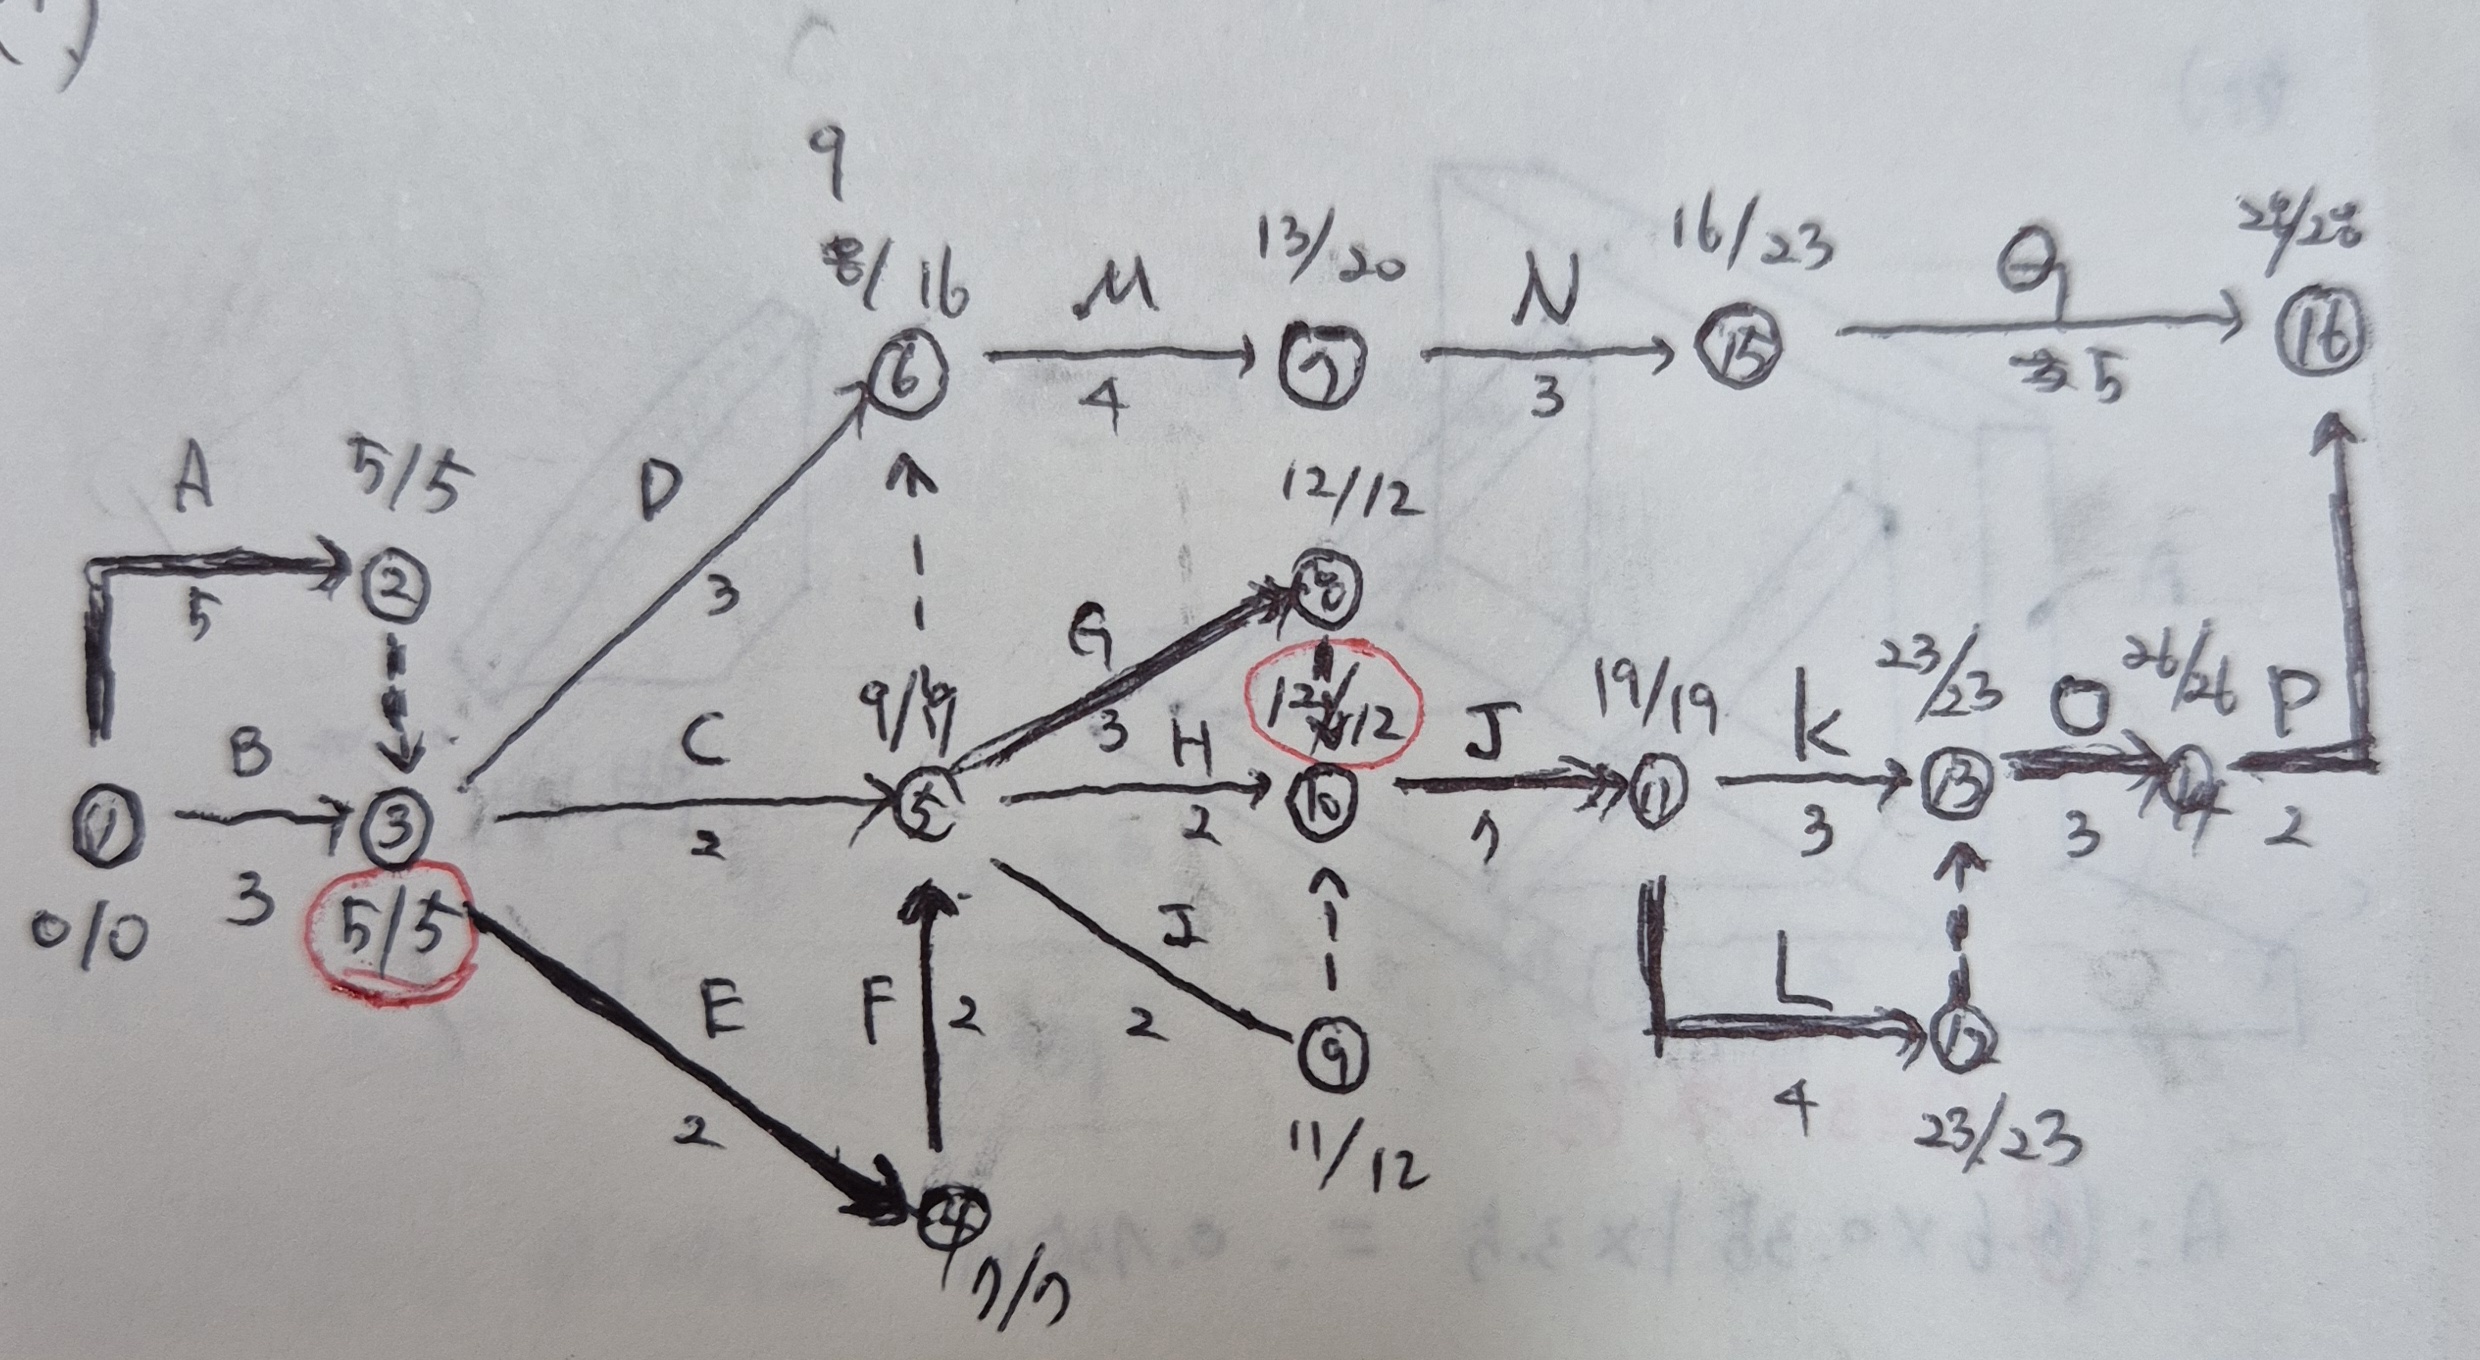 9
8/16 M 13/20 N 16/23 Q 28/28
6 4 7 3 15 5 16
A 5/5 D 12/12
5 2 3 G 8
B C 9/9 3 H 12/12 J 19/19 K 23/23 O 26/26 P
1 3 3 2 5 2 10 7 11 3 13 3 14 2
0/0 5/5 E F 2 J L
2 2 9 4 12
4 11/12 23/23
7/7